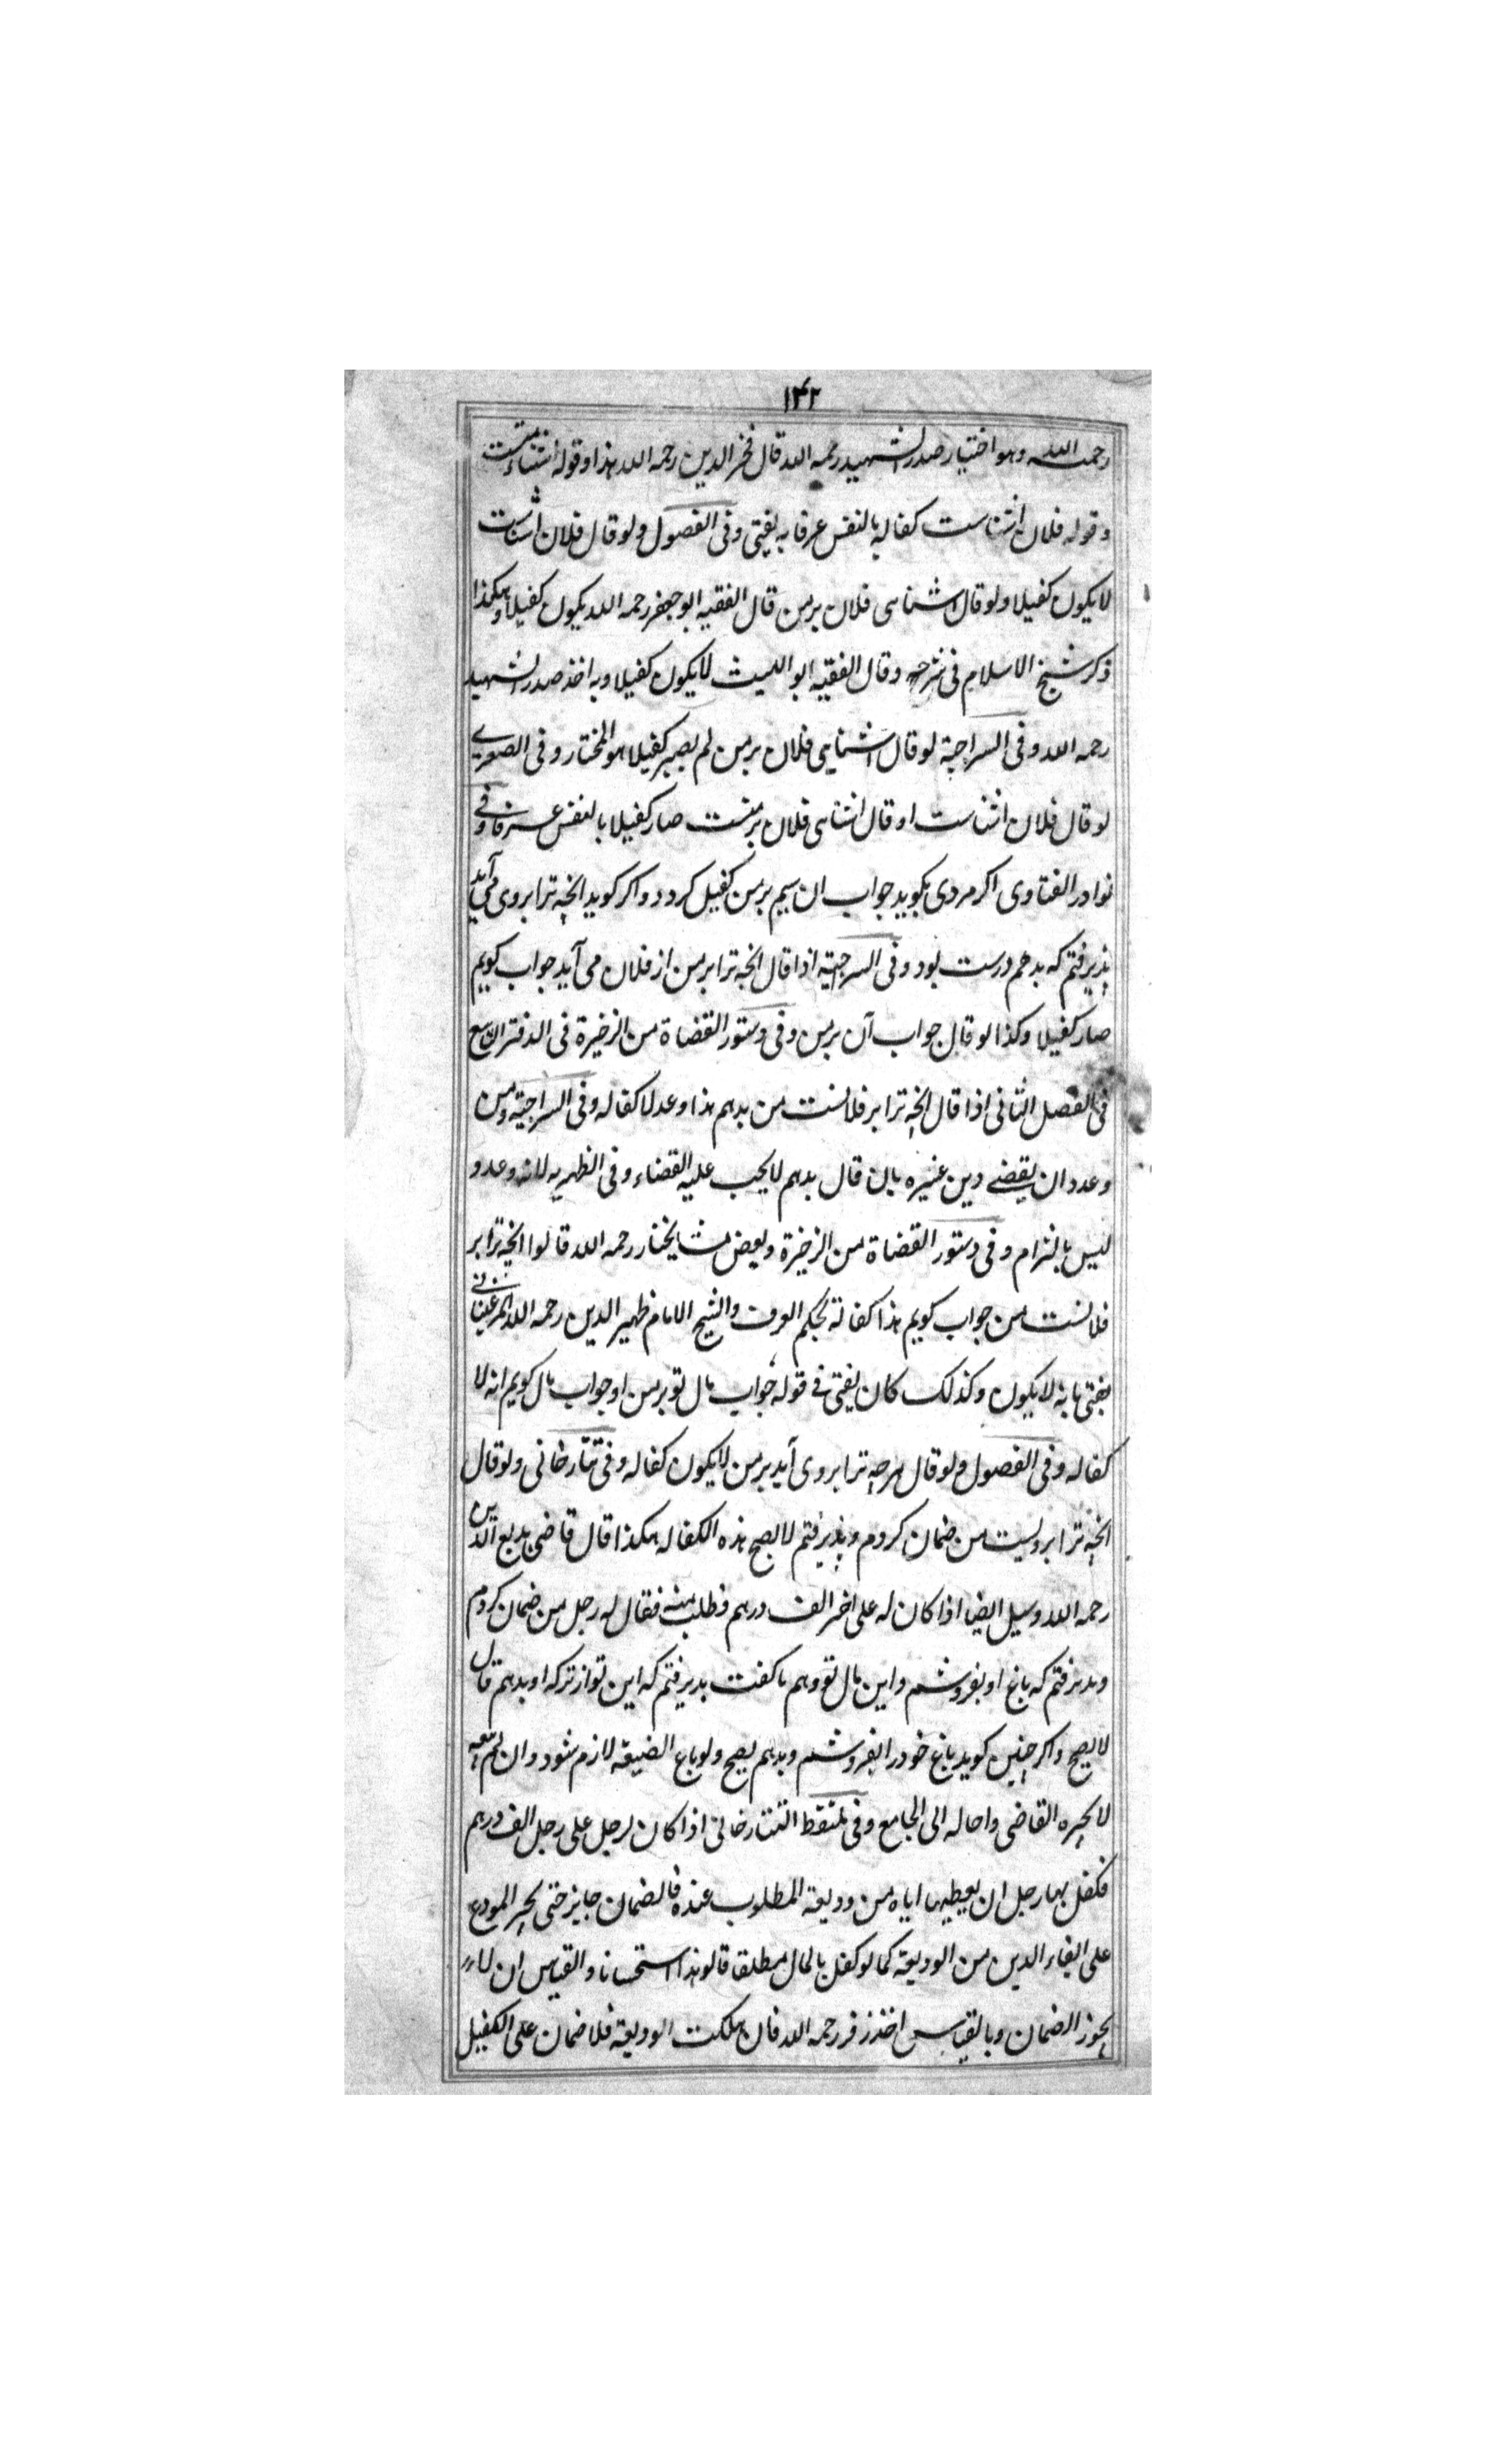 ۱۴۲
رحمه الله وهو اختیار صدر الشهید رحمه الله قال فخر الدین رحمه الله هذا وقوله اشناء منست
وقوله فلان اشناست کفاله بالنفس عرفا به یفتی وفی الفصول ولو قال فلان اشناست
لا یکون کفیلا ولو قال اشنایی فلان بر من قال الفقیه ابو جعفر رحمه الله یکون کفیلا وهکذا
ذکر شیخ الاسلام فی شرحه وقال الفقیه ابو اللیث لا یکون کفیلا وبه اخذ صدر الشهید
رحمه الله وفی السراجیة لو قال اشنایی فلان بر من لم یصیر کفیلا هو المختار وفی الصغری
لو قال فلان اشناست او قال اشنایی فلان بر منست صار کفیلا بالنفس عرفا وفی
نوادر الفتاوی اکر مردی بکوید جواب ان سیم بر من کفیل کردد واکر کوید انچه ترا بر وی می آید
پذیرفتم که بدهم درست بود وفی السرجیة اذا قال انچه ترا بر من از فلان می آید جواب کویم
صار کفیلا وکذا لو قال جواب آن بر من وفی دستور القضاة من الزخیرة فی الدفتر التاسع
فی الفصل الثانی اذا قال انچه ترا بر فلانست من بدهم هذا وعد لا کفاله وفی السراجیة ومن
وعد دان یقضے دین غیره بان قال بدهم لا یجب علیه القضاء وفی الظهریه لانه وعد و
لیس بالتزام وفی دستور القضاة من الزخیرة وبعض مشایخنا رحمه الله قالوا انچه ترا بر
فلانست من جواب کویم هذا کفالة بحکم العرف والشیخ الامام ظهیر الدین رحمه الله المرغینانی
یفتی بانه لا یکون وکذلک کان یفتی فے قوله جواب مال تو بر من او جواب مال کویم انه لا
کفاله وفی الفصول ولو قال هرچه ترا بر وی آید بر من لا یکون کفاله وفی تتارخانی ولو قال
انچه ترا بر ویست من ضمان کردم وپذیرفتم لا یصح هذه الکفاله هکذا قال قاضی بدیع الدین
رحمه الله وسیل ایضا اذا کان له علی اخر الف درهم فطلب منه فقال له رجل من ضمان کردم
وپذیرفتم که باغ او بفروشم واین مال تو دهم یا کفت پذیرفتم که این تو از ترکه او بدهم قال
لا یصح واکر چنین کوید باغ خود را بفروشم وبدهم یصح ولو باع الضیعه لازم شود وان لم یبعه
لا یجبره القاضی واحاله الی الجامع وفی ملتقط التتارخانی اذا کان لرجل علی رجل الف درهم
فکفل بها رجل ان یعطیها ایاه من ودیعة المطلوب عنده فالضمان جایز حتی یجبر المودع
علی ایفاء الدین من الودیعة کما لو کفل بالمال مطلقا قالو هذا استحسانا والقیاس ان لا
یجوز الضمان وبالقیاس اخذ زفر رحمه الله فان هلکت الودیعه فلا ضمان علی الکفیل